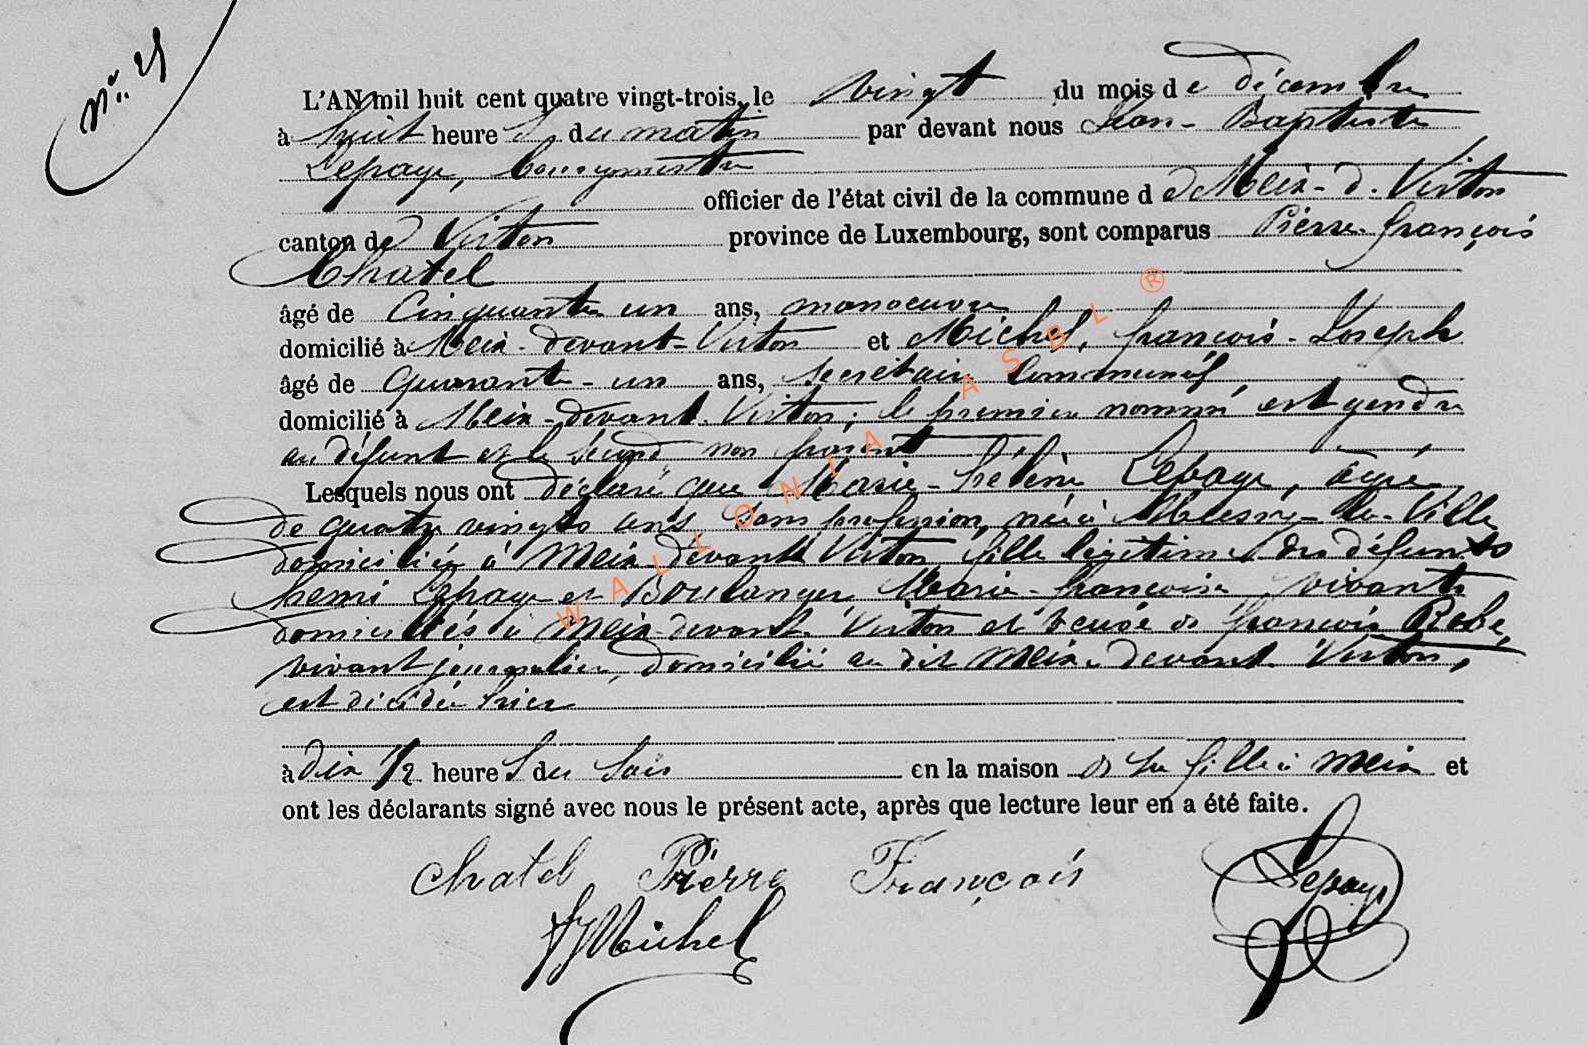 L'AN mil huit cent quatre vingt-trois, le vingt du mois de décembre
à huit heures du matin par devant nous Jean-Baptiste
Lepage, bourgmestre
officier de l'état civil de la commune d de Meix-d.-Virton
canton de Virton province de Luxembourg, sont comparus Pierre-François
Chatel
âgé de Cinquante un ans, manoeuvre
domicilié à Meix-devant-Virton et Michel, françois-Joseph
âgé de quarante-un ans, secrétaire communal
domicilié à Meix-devant-Virton; le premier nommé est gendre
au défunt et le second non parent
Lesquels nous ont déclaré que Marie-hélène Lepage, âgée
de quatre vingts ans sans profession, née à la-Ville
domiciliée à Meix devant Virton fille légitime des défunts
henri Lepage et Boulanger Marie-françoise, vivants
domiciliés à Meix devant Virton et veuve de françois Rebe,
vivant journalier, domicilié au dit Meix-devant-Virton,
est décédée hier
à dix 1/2 heures du soir en la maison de sa fille à Meix et
ont les déclarants signé avec nous le présent acte, après que lecture leur en a été faite.
Chatel Pierre François Lepage
fJMichel
WALLONIA ASBL ®